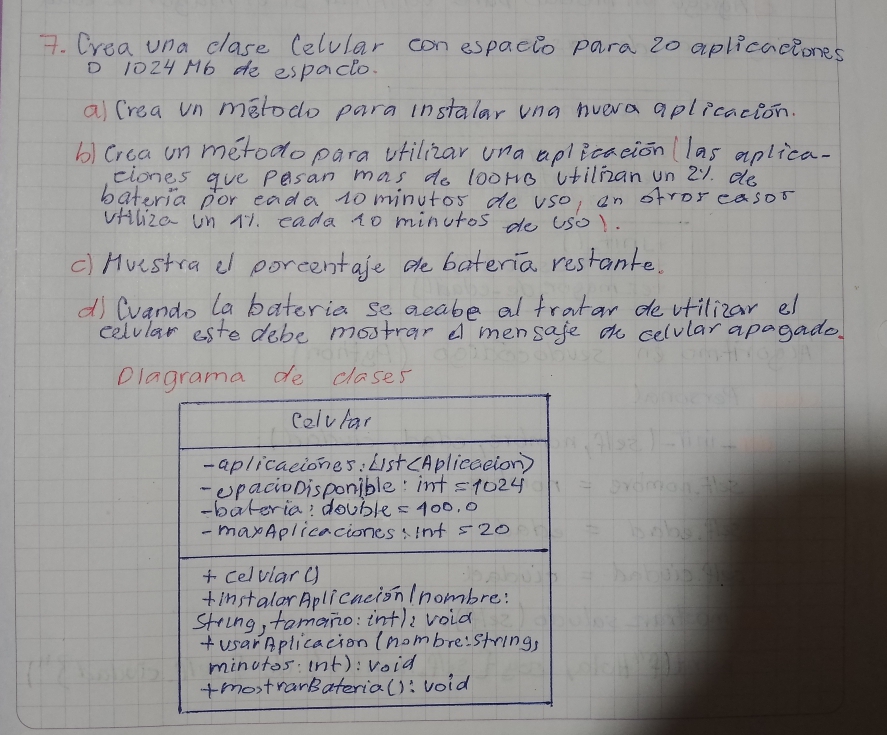 7. Crea una clase Celular con espacio para 20 aplicaciones
o 1024 Mb de espacio.
a) Crea un método para instalar una nueva aplicación.
b) Crea un método para utilizar una aplicación (las aplica-
ciones que pesan mas de 100MB utilizan un 2% de
batería por cada 10 minutos de uso, en otros casos
utiliza un 1% cada 10 minutos de uso).
c) Muestra el porcentaje de batería restante.
d) Cuando la bateria se acabe al tratar de utilizar el
celular este debe mostrar el mensaje de celular apagado.
Diagrama de clases
Celular
- aplicaciones: List<Aplicacion>
- espacioDisponible: int = 1024
- bateria: double = 100.0
- maxAplicaciones: int = 20
+ celular()
+ instalarAplicación (nombre:
String, tamaño: int): void
+ usarAplicacion (nombre: String,
minutos: int): void
+ mostrarBateria(): void